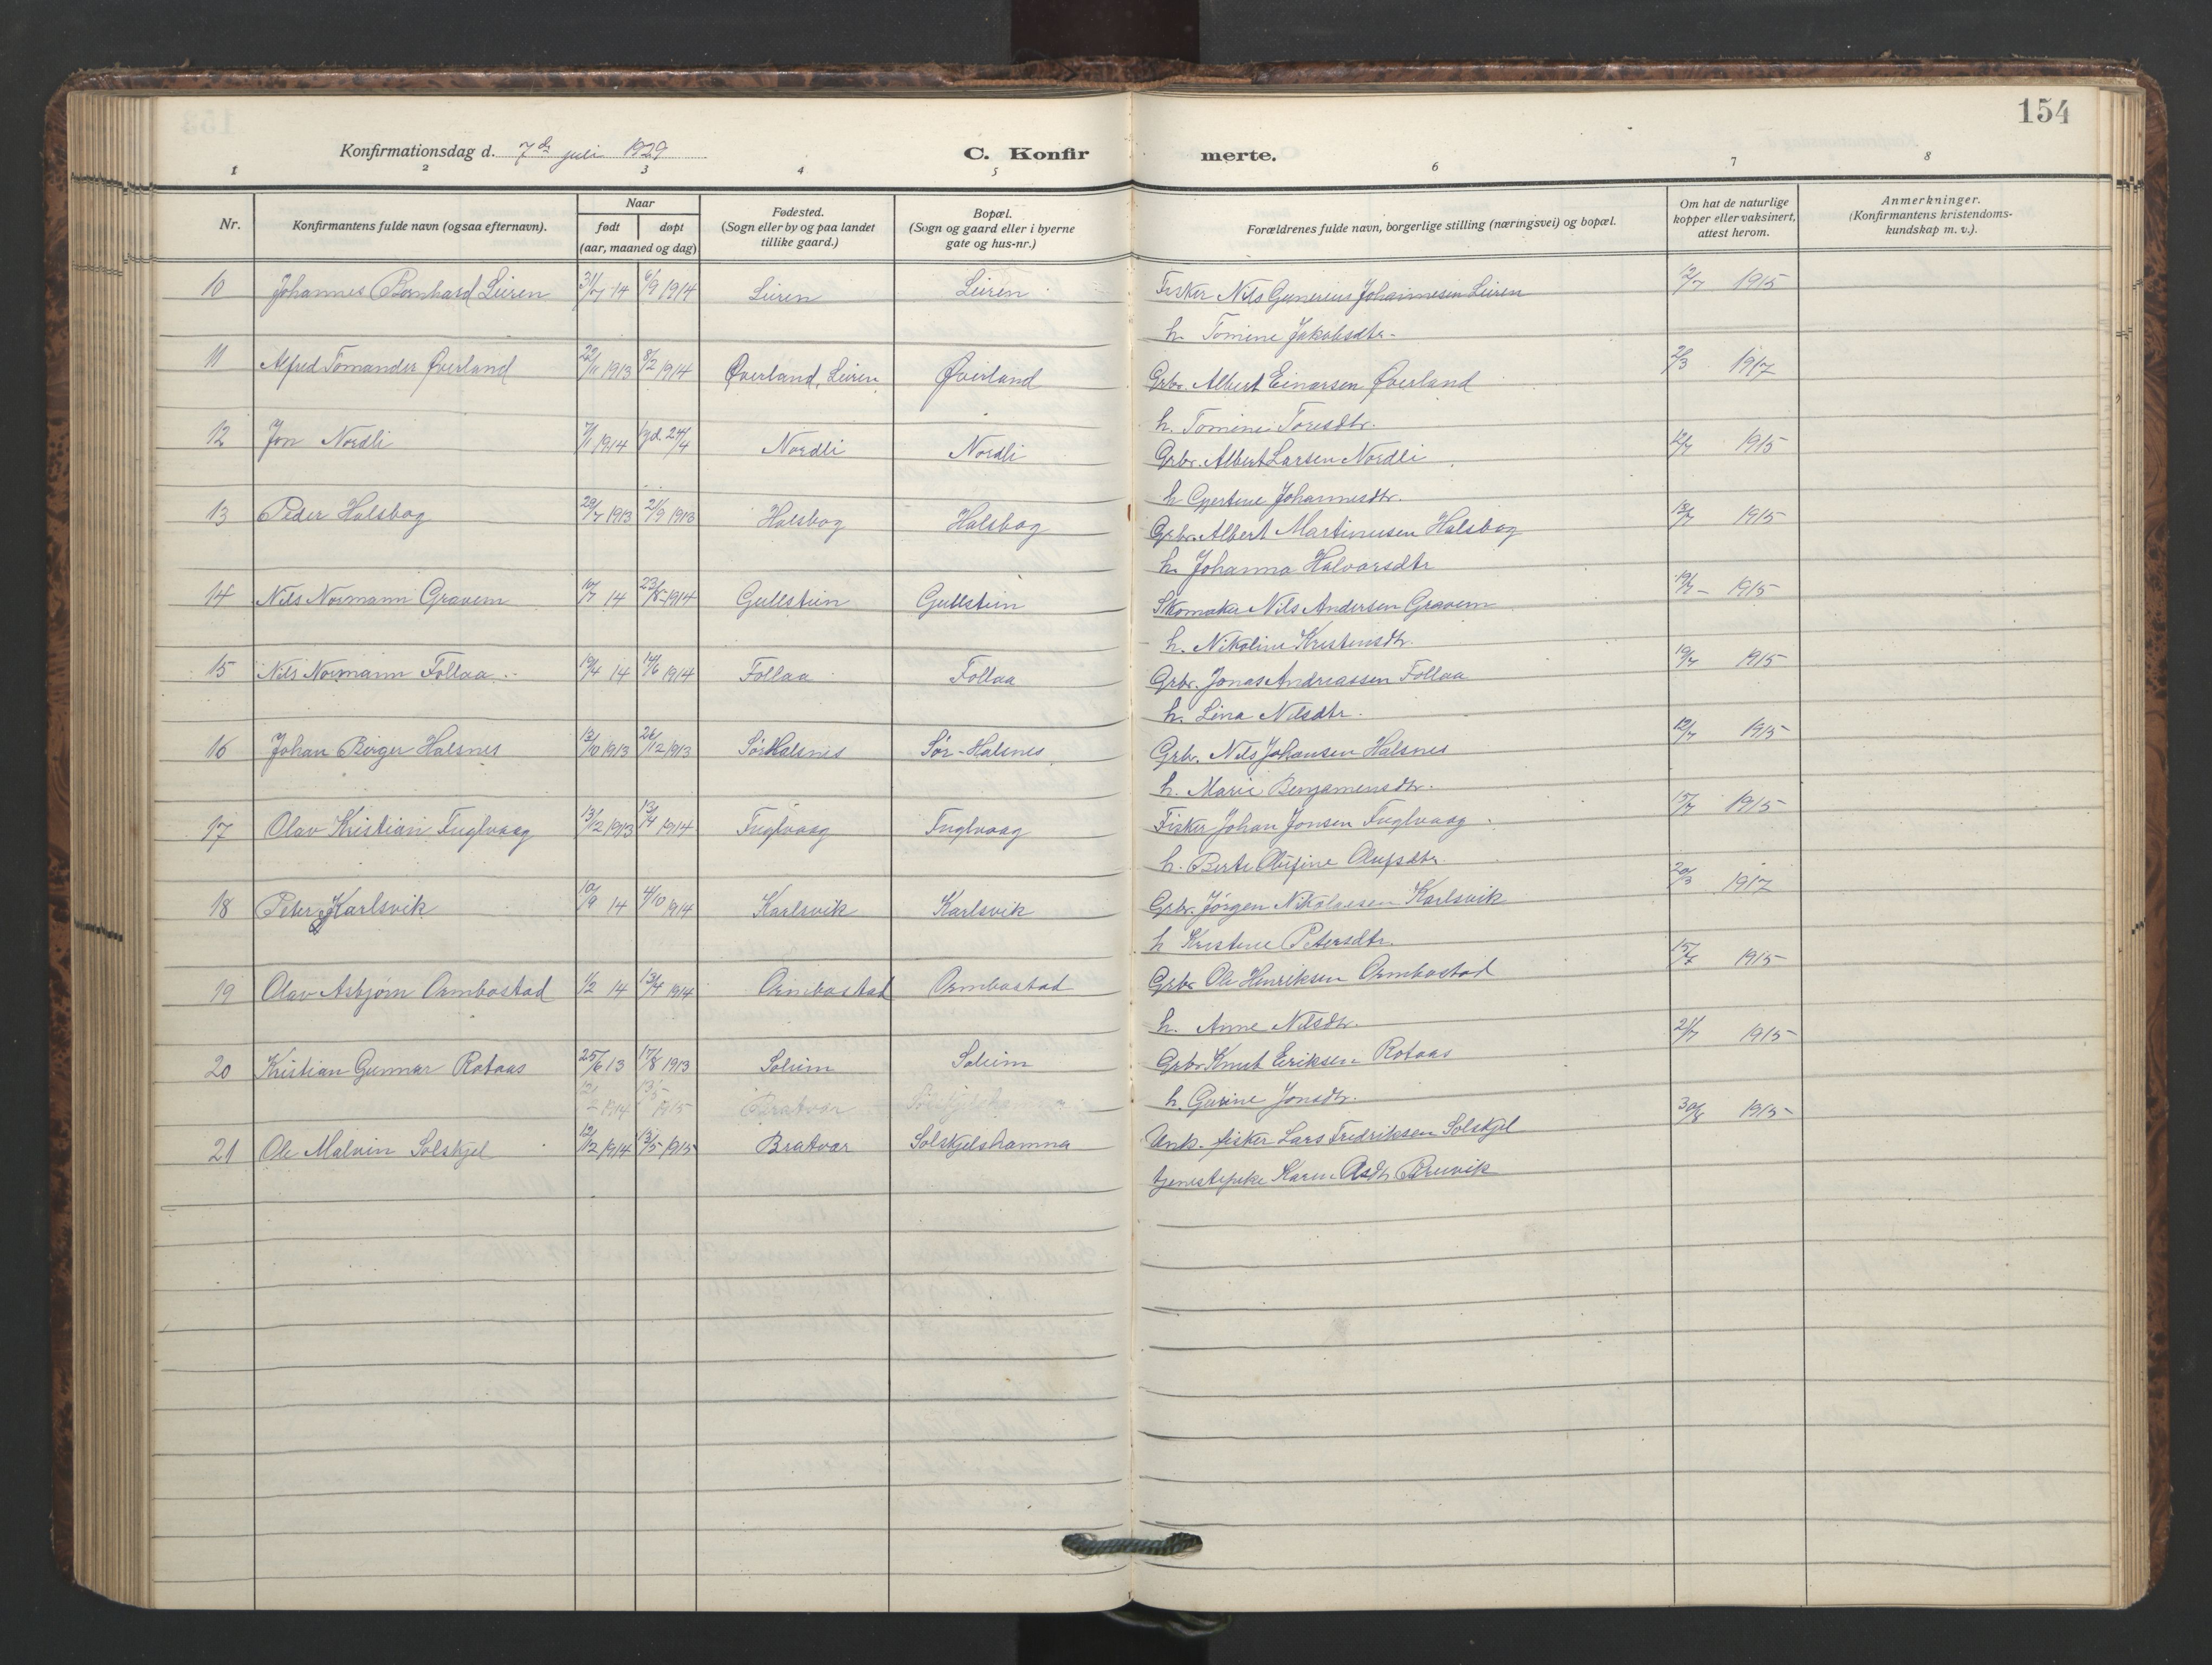 154
Konfirmationsdag d. 7de juli 1929
C. Konfirmerte.
1 2 3 4 5 6 7 8
Nr.
Konfirmantens fulde navn (ogsaa efternavn).
Naar
født døpt
(aar, maaned og dag)
Fødested.
(Sogn eller by og paa landet
tillike gaard.)
Bopæl.
(Sogn og gaard eller i byerne
gate og hus-nr.)
Forældrenes fulde navn, borgerlige stilling (næringsvei) og bopæl.
Om hat de naturlige
kopper eller vaksinert,
attest herom.
Anmerkninger.
(Konfirmantens kristendoms-
kundskap m. v.).
10 Johannes Bernhard Leiren 31/7 14 6/9 1914 Leiren Leiren Fisker Nils Gunerius Johannesen Leiren 12/7 1915
h. Tomine Jakobsdtr.
11 Alfred Tomander Øverland 22/11 1913 8/2 1914 Øverland, Leiren Øverland Grbr. Albert Einarsen Øverland 21/3 1917
h. Tomine Toresdtr.
12 Jon Nordli 7/11 1914 hjd. 24/4 Nordli Nordli Grbr. Albert Larsen Nordli 12/7 1915
h. Gjertine Johannesdtr.
13 Peder Halsbog 29/7 1913 21/9 1913 Halsbog Halsbog Grbr. Albert Martinusen Halsbog 12/7 1915
h. Johanna Halvorsdtr
14 Nils Normann Gravem 10/7 14 23/8 1914 Gullstein Gullstein Skomaker Nils Andersen Gravem 19/7 - 1915
h. Nikoline Kristensdtr.
15 Nils Normann Follaa 19/4 14 14/6 1914 Follaa Follaa Grbr. Jonas Andreassen Follaa 19/7 1915
h. Lina Nilsdtr.
16 Johan Birger Halsnes 13/10 1913 26/12 1913 Sør Halsnes Sør-Halsnes Grbr. Nils Johansen Halsnes 12/7 1915
h. Marie Benjamensdtr.
17 Olav Kristian Fuglvaag 13/12 1913 13/4 1914 Fuglvaag Fuglvaag Fisker Johan Jonsen Fuglvaag 15/7 1915
h. Berte Olufine Olufsdtr.
18 Peter J Karlsvik 10/9 14 4/10 1914 Karlsvik Karlsvik Grbr. Jørgen Nikolaisen Karlsvik 20/3 1917
h Kristine Petersdtr.
19 Olav Asbjørn Ormbostad 1/2 14 13/4 1914 Ormbostad Ormbostad Grbr Ole Henriksen Ormbostad 15/7 1915
h. Anne Nilsdtr.
20 Kristian Gunnar Rotaas 25/6 13 17/8 1913 Soleim Soleim Grbr Knut Eriksen Rotaas 21/7 1915
h. Gurine Jonsdtr.
21 Ole Malvin Solskjel 12/12 1914 13/5 1915 Bratvær Solskjelshamna Unk. fisker Lars Fredriksen Solskjel 30/8 1915
tjenestepike Karen Asdtr Bruvik